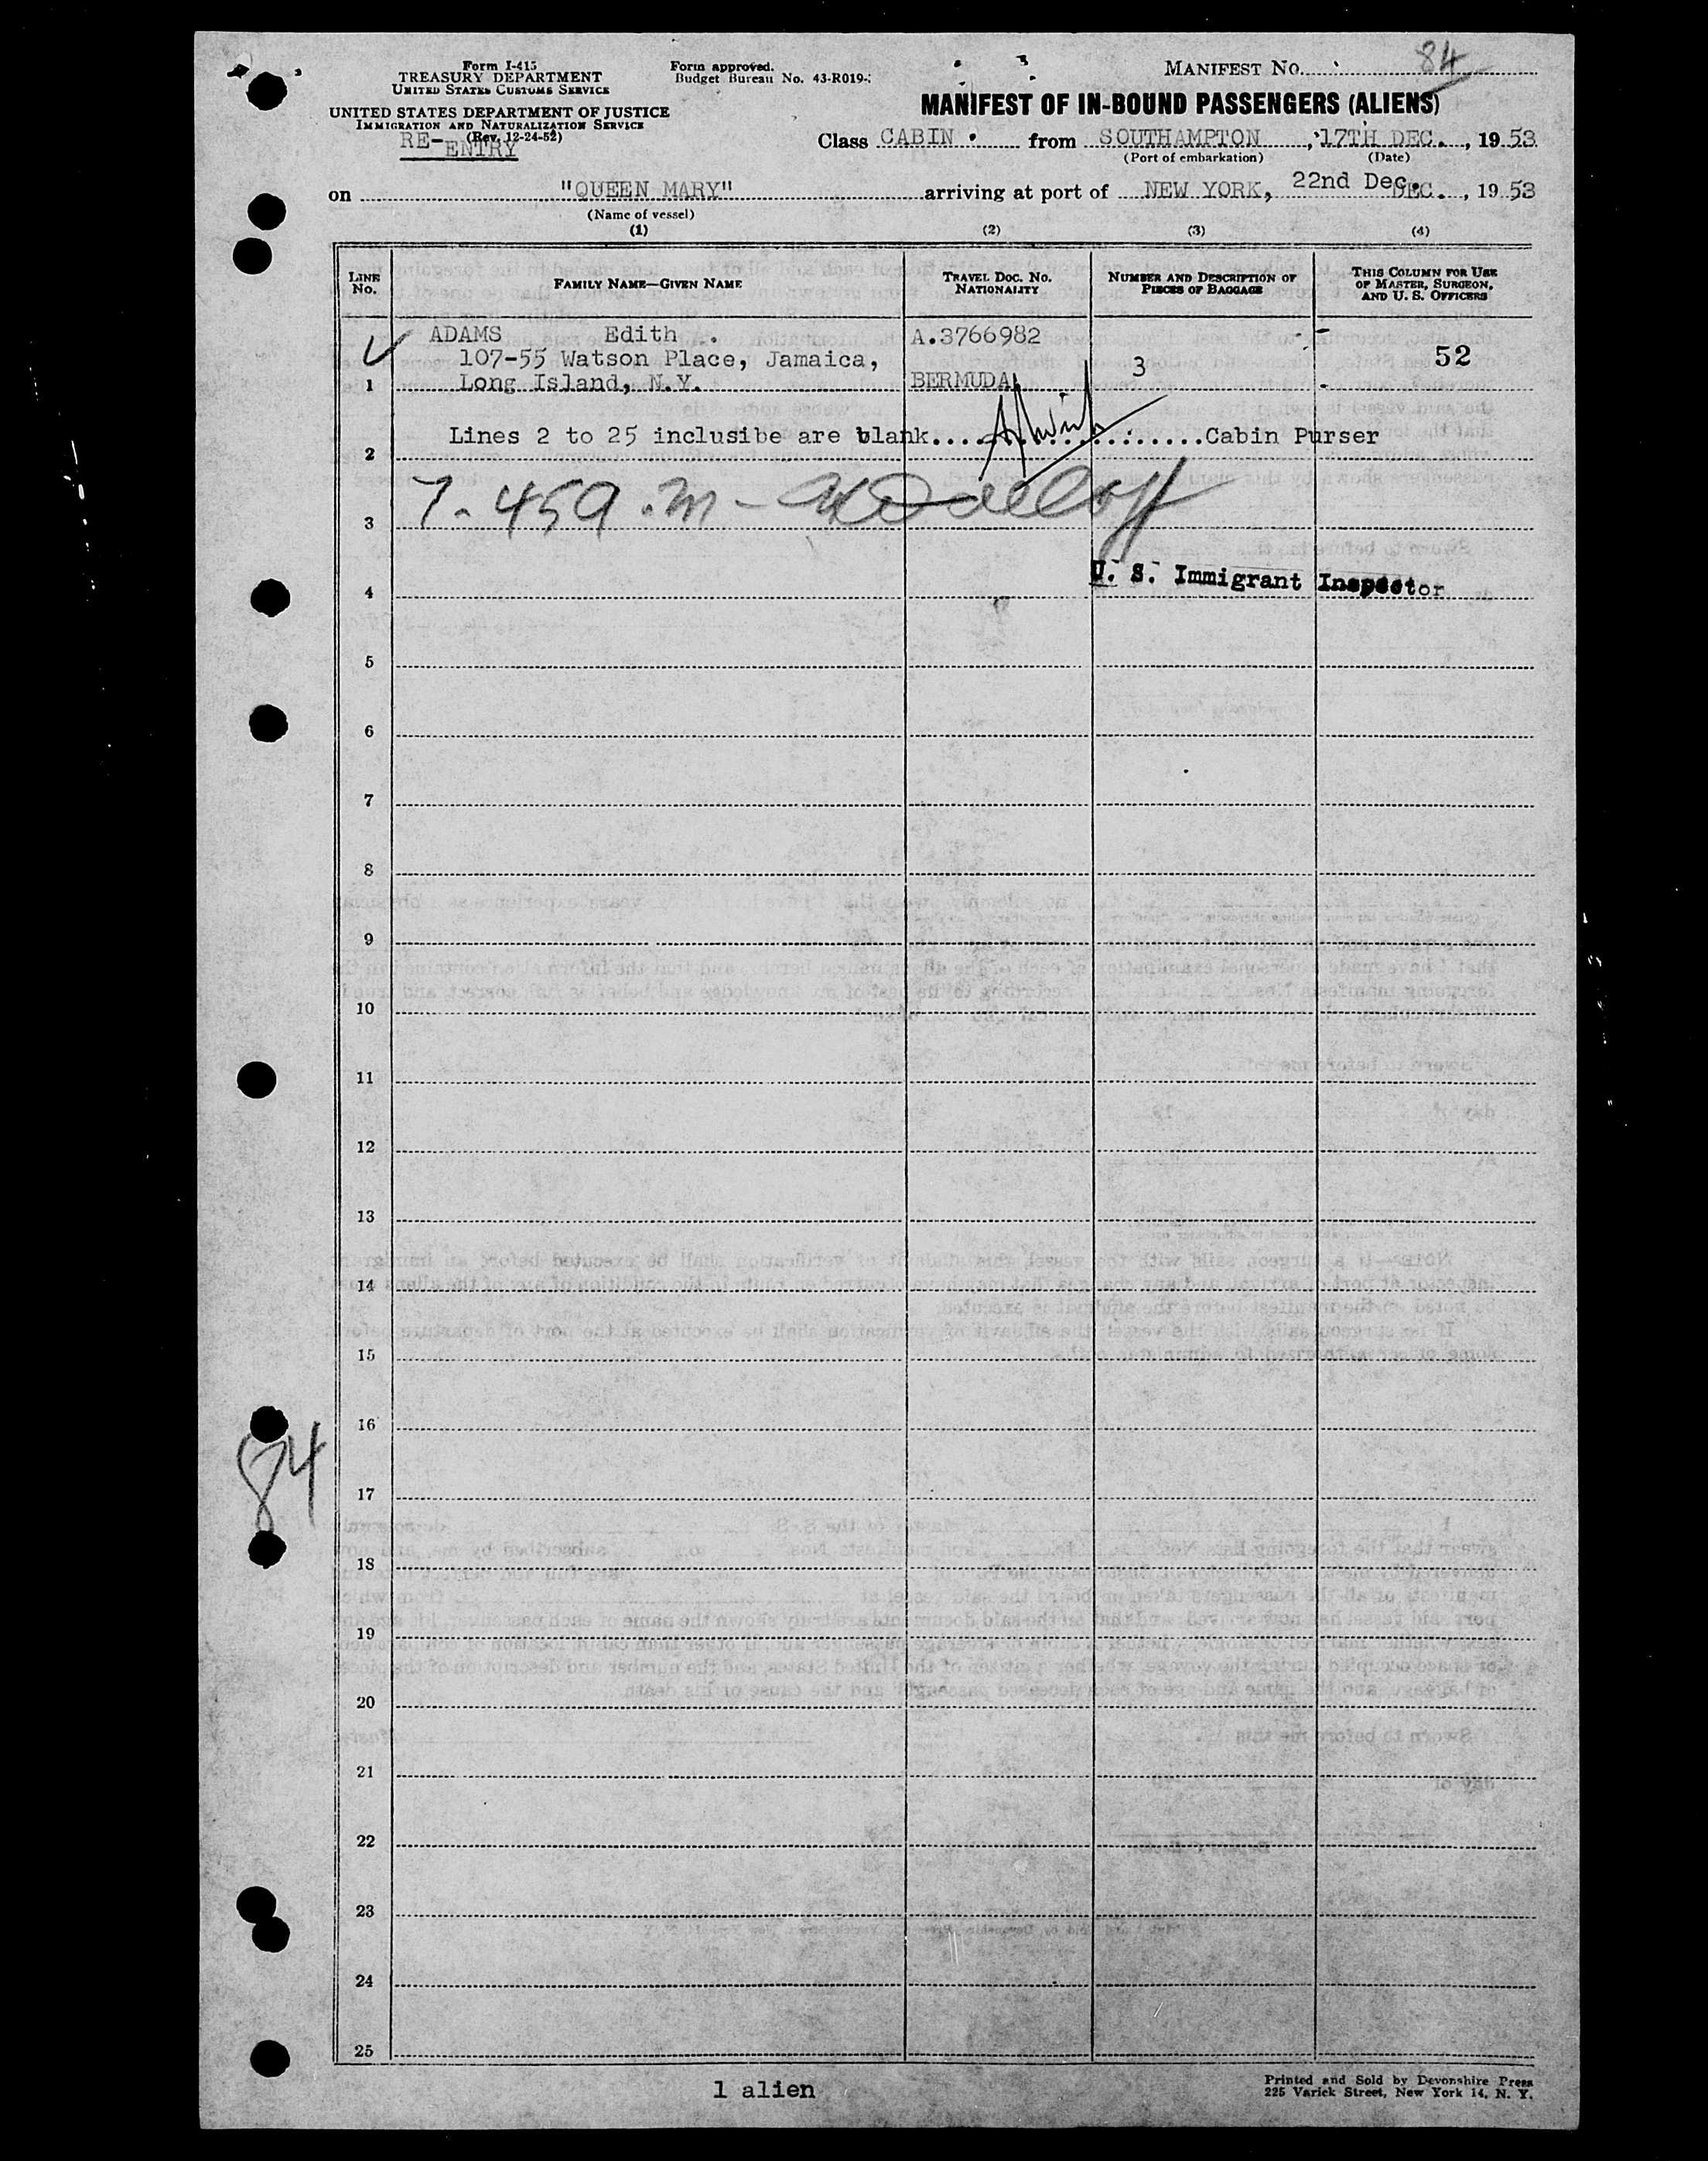 Form I-415
TREASURY DEPARTMENT
UNITED STATES CUSTOMS SERVICE
UNITED STATES DEPARTMENT OF JUSTICE
IMMIGRATION AND NATURALIZATION SERVICE
(Rev. 12-24-52)
RE-ENTRY
Form approved.
Budget Bureau No. 43-R019-
MANIFEST NO. 84
MANIFEST OF IN-BOUND PASSENGERS (ALIENS)
Class CABIN from SOUTHAMPTON, 17TH DEC., 1953
(Port of embarkation) (Date)
on "QUEEN MARY" arriving at port of NEW YORK, 22nd Dec. DEC., 1953
(Name of vessel)
(1) (2) (3) (4)
LINE No. FAMILY NAME—GIVEN NAME TRAVEL DOC. NO. NATIONALITY NUMBER AND DESCRIPTION OF PIECES OF BAGGAGE THIS COLUMN FOR USE OF MASTER, SURGEON, AND U. S. OFFICERS
ADAMS Edith . A.3766982
107-55 Watson Place, Jamaica, 3 52
1 Long Island, N.Y. BERMUDA
Lines 2 to 25 inclusibe are blank.... ......Cabin Purser
2
7.45 a.m -
3
U. S. Immigrant Inspector
4
5
6
7
8
9
10
11
12
13
14
15
16
84
17
18
19
20
21
22
23
24
25
1 alien
Printed and Sold by Devonshire Press
225 Varick Street, New York 14, N. Y.